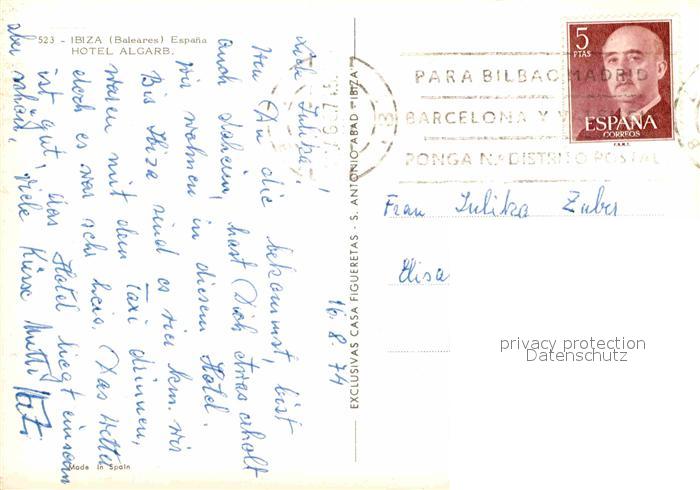 523 - IBIZA (Baleares) España
HOTEL ALGARB.
16.8.74
Liebe Julika!
Wenn Du die bekommst, bist
auch daheim, hast Dich etwas erholt
wir wohnen in diesem Hotel.
Bis Ibiza sind es vier km. wir
waren mit dem Taxi drinnen,
doch es war sehr heis. Das Wetter
ist gut, das Hotel liegt einsam
aber schön, viele Küsse Mutti
Made in Spain
EXCLUSIVAS CASA FIGUERETAS - S. ANTONIO ABAD "IBIZA"
PARA BILBAO, MADRID
BARCELONA Y
PONGA N.º DISTRITO POSTAL
5
PTAS
ESPAÑA
CORREOS
F.N.M.T.
Frau Julika Zuber
Elisa
privacy protection
Datenschutz